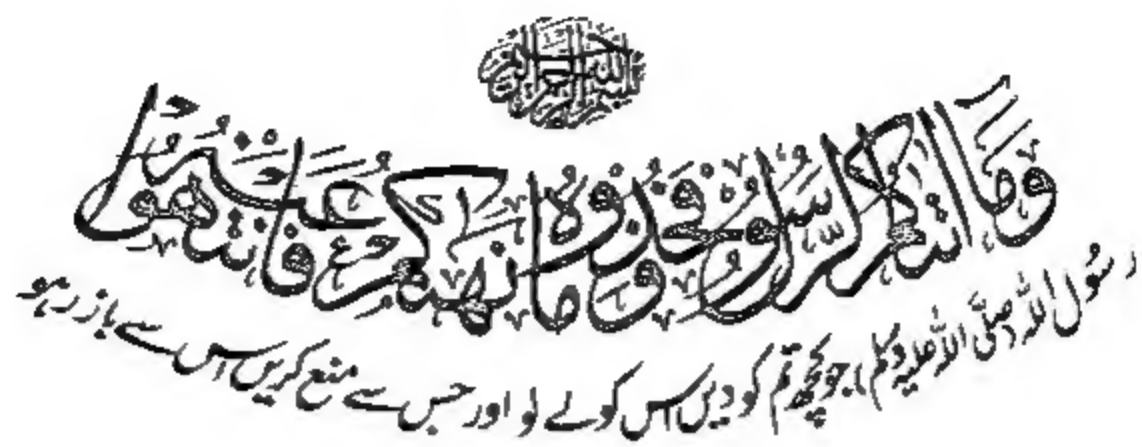 بسم الله الرحمن الرحيم
وَمَا اٰتٰىكُمُ الرَّسُوْلُ فَخُذُوْهُ وَمَا نَهٰىكُمْ عَنْهُ فَانْتَهُوْا
رسول اللہ (صلی اللہ علیہ وسلم) جو کچھ تم کو دیں اس کو لے لو اور جس سے منع کریں اس سے باز رہو